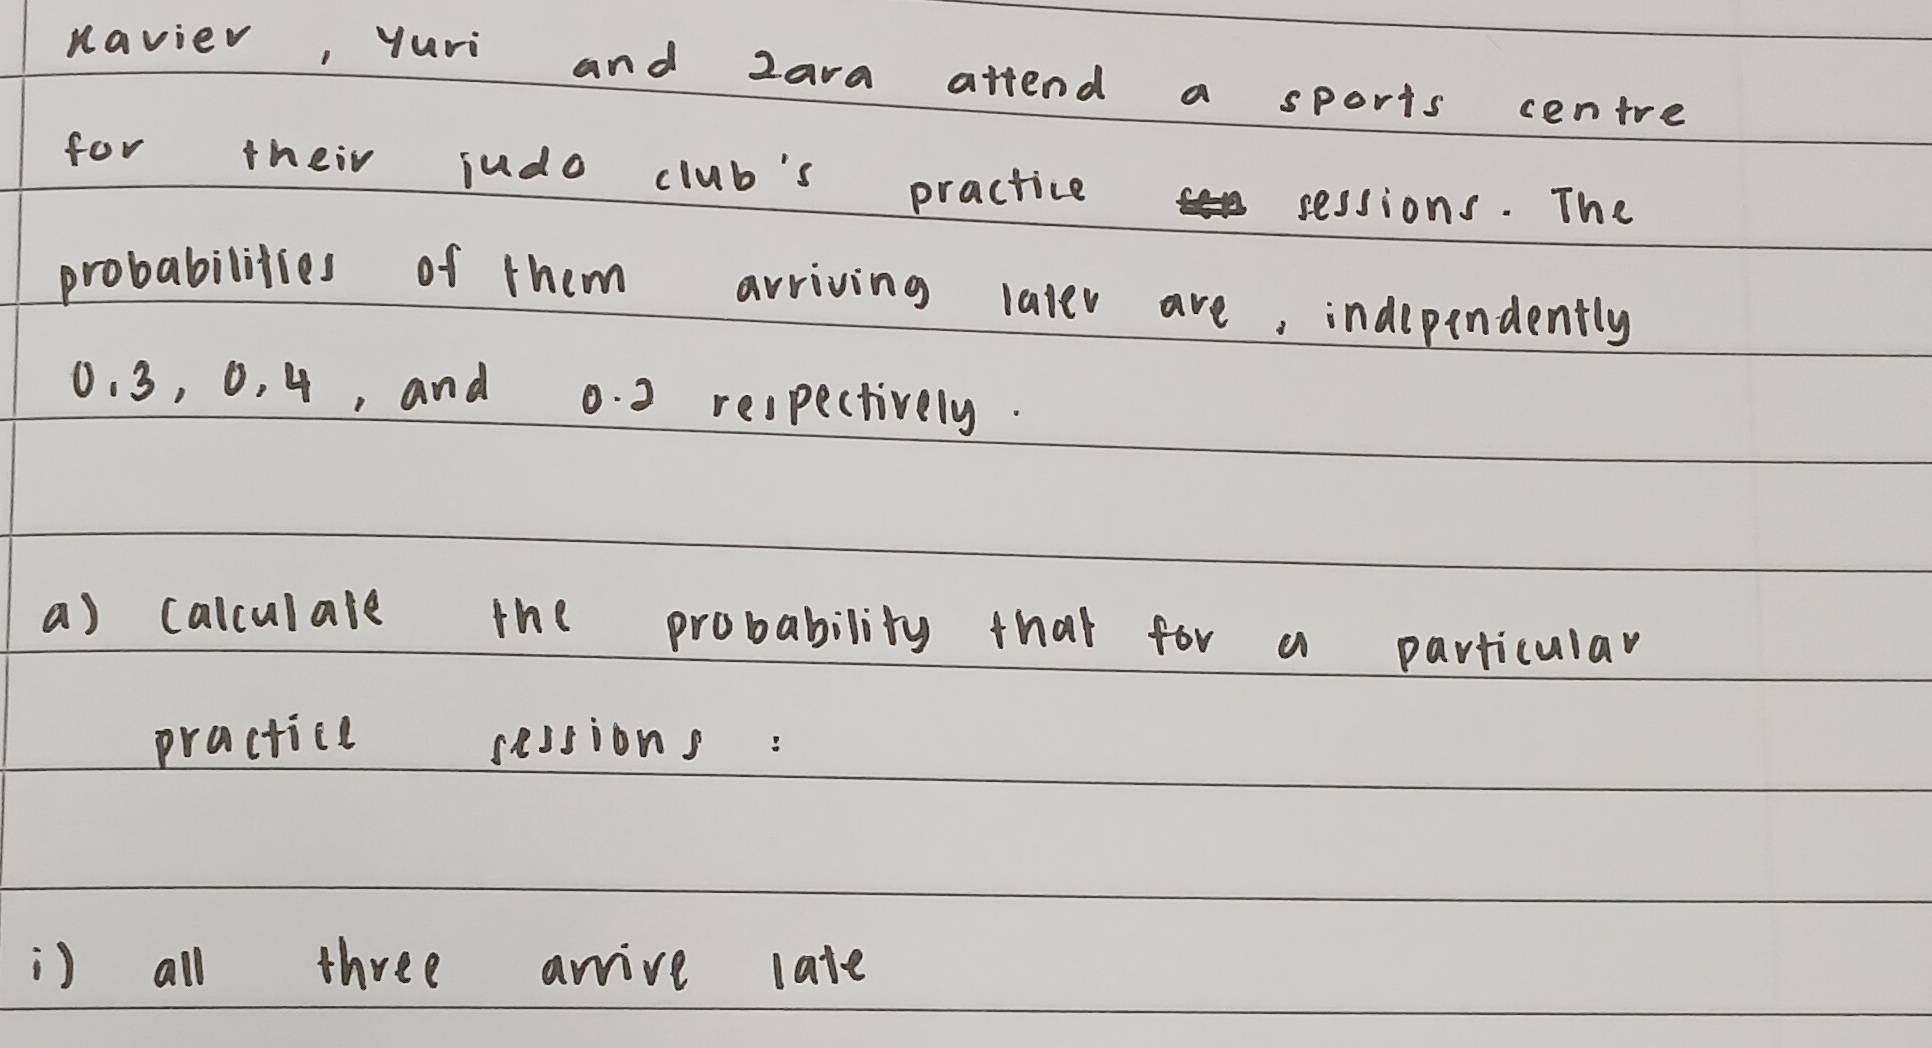 Xavier, Yuri and Zara attend a sports centre
for their judo club's practice sessions. The
probabilities of them arriving later are, independently
0.3, 0.4, and 0.2 respectively.
a) Calculate the probability that for a particular
practice sessions:
i) all three arrive late